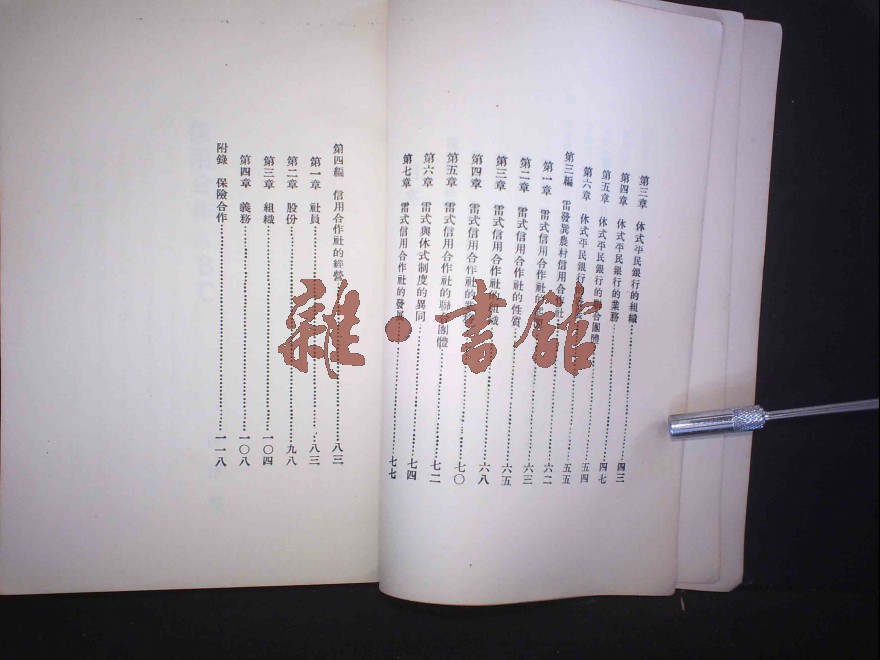 第三章 休式平民銀行的組織 四三
第四章 休式平民銀行的業務 四七
第五章 休式平民銀行的聯合團體 五四
第六章 休式平民銀行的
第三編 雷發巽農村信用合作社 五五
第一章 雷式信用合作社的 六二
第二章 雷式信用合作社的性質 六三
第三章 雷式信用合作社的組織 六五
第四章 雷式信用合作社的業務 六八
第五章 雷式信用合作社的聯合團體 七〇
第六章 雷式與休式制度的異同 七二
第七章 雷式信用合作社的發展 七四
七七
第四編 信用合作社的經營 八三
第一章 社員 八三
第二章 股份 九八
第三章 組織 一〇四
第四章 義務 一〇八
附錄 保險合作 一一八
雜·書館